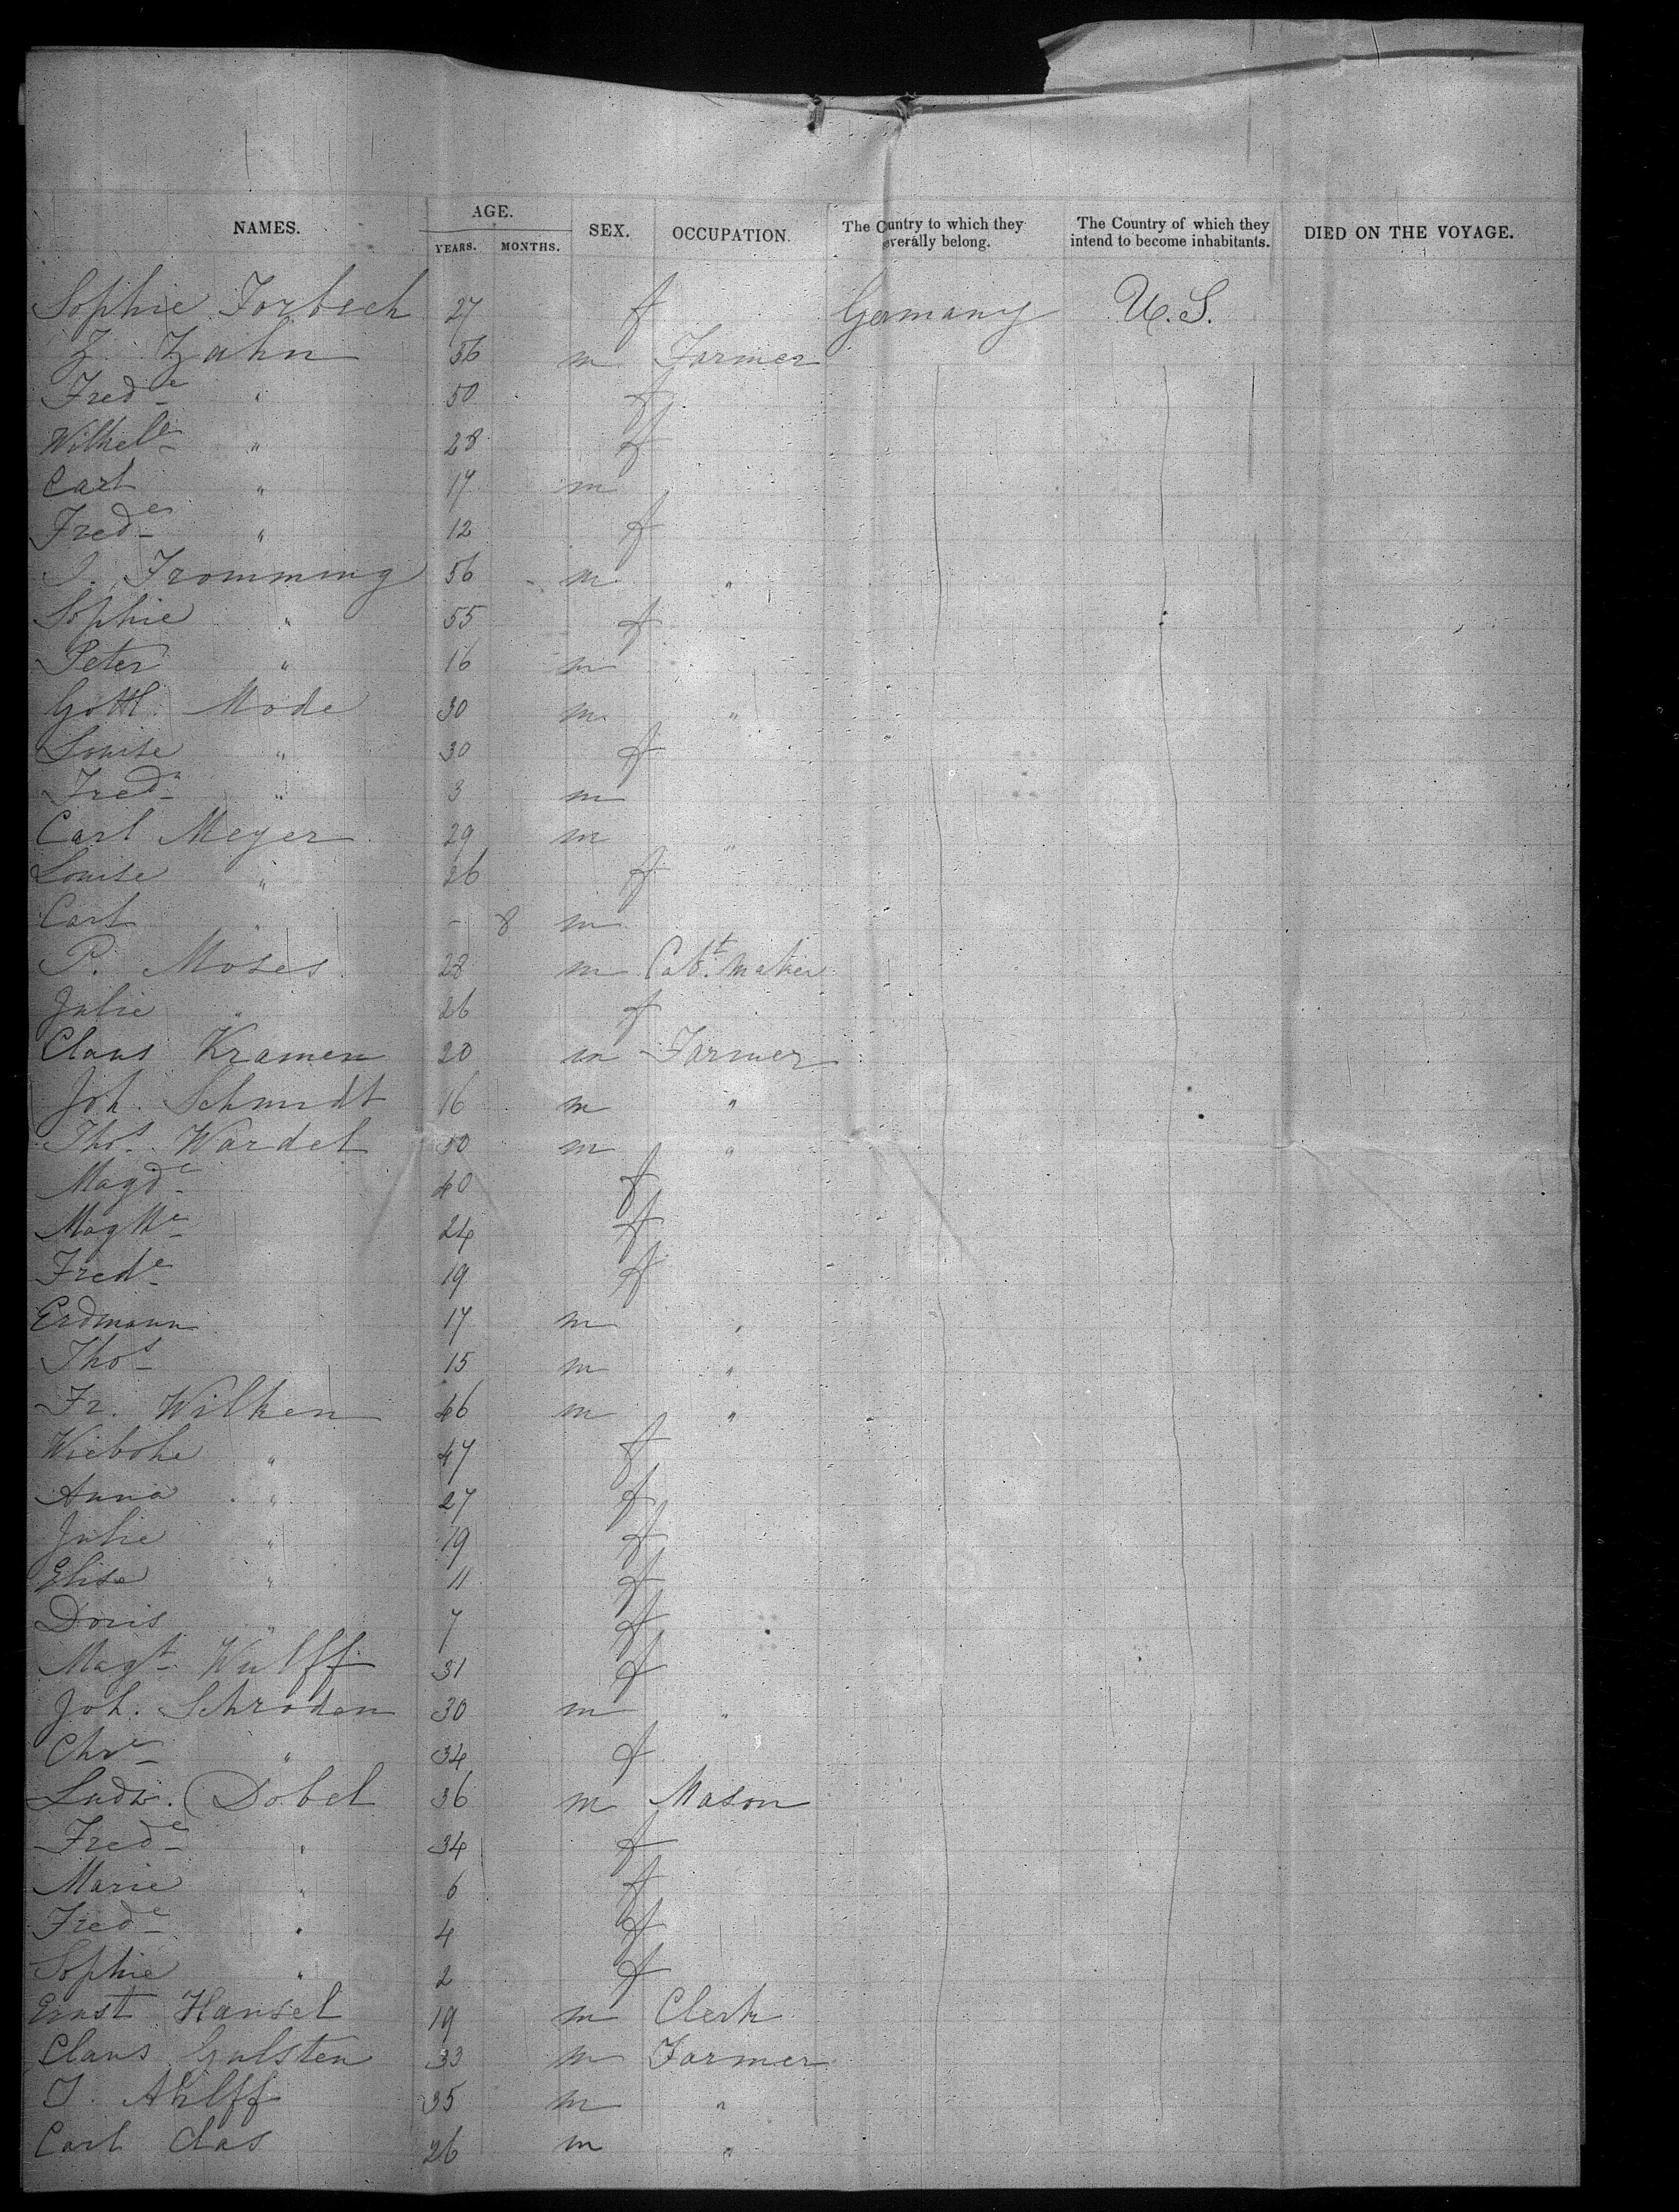 NAMES. AGE. YEARS. MONTHS. SEX. OCCUPATION. The Country to which they severally belong. The Country of which they intend to become inhabitants. DIED ON THE VOYAGE.
Sophie Forbech 27 f Germany U.S.
Z. Zahn 56 m Farmer
Frede " 50 f
Wilhele " 28 f
Carl " 17 m
Frede " 12 f
J. Fromming 56 m "
Sophie " 55 f
Peter " 16 m
Gottl. Mode 30 m "
Louise " 30 f
Fredk " 3 m
Carl Meyer 29 m "
Louise " 26 f
Carl " - 8 m
P. Moses 28 m Cabt. Maker
Julie " 26 f
Claus Kramer 20 m Farmer
Joh. Schmidt 16 m "
Thos. Wardel 50 m "
Magde 40 f
24 f
Frede 19 f
Erdmann 17 m "
Thos 15 m "
Fr. Wilken 46 m "
Wiebohe " 47 f
Anna " 27 f
Julie " 19 f
Elise " 11 f
Doris " 7 f
Magt. Wulff 31 f
Joh. Schroden 30 m "
Chre " 34 f
Ludw. Dobel 36 m Mason
Frede " 34 f
Marie " 6 f
Frede " 4 f
Sophie " 2 f
Ernst Hansel 19 m Clerk
Claus Gulsten 33 m Farmer
J. Ahlff 35 m "
Carl Clas 26 m "